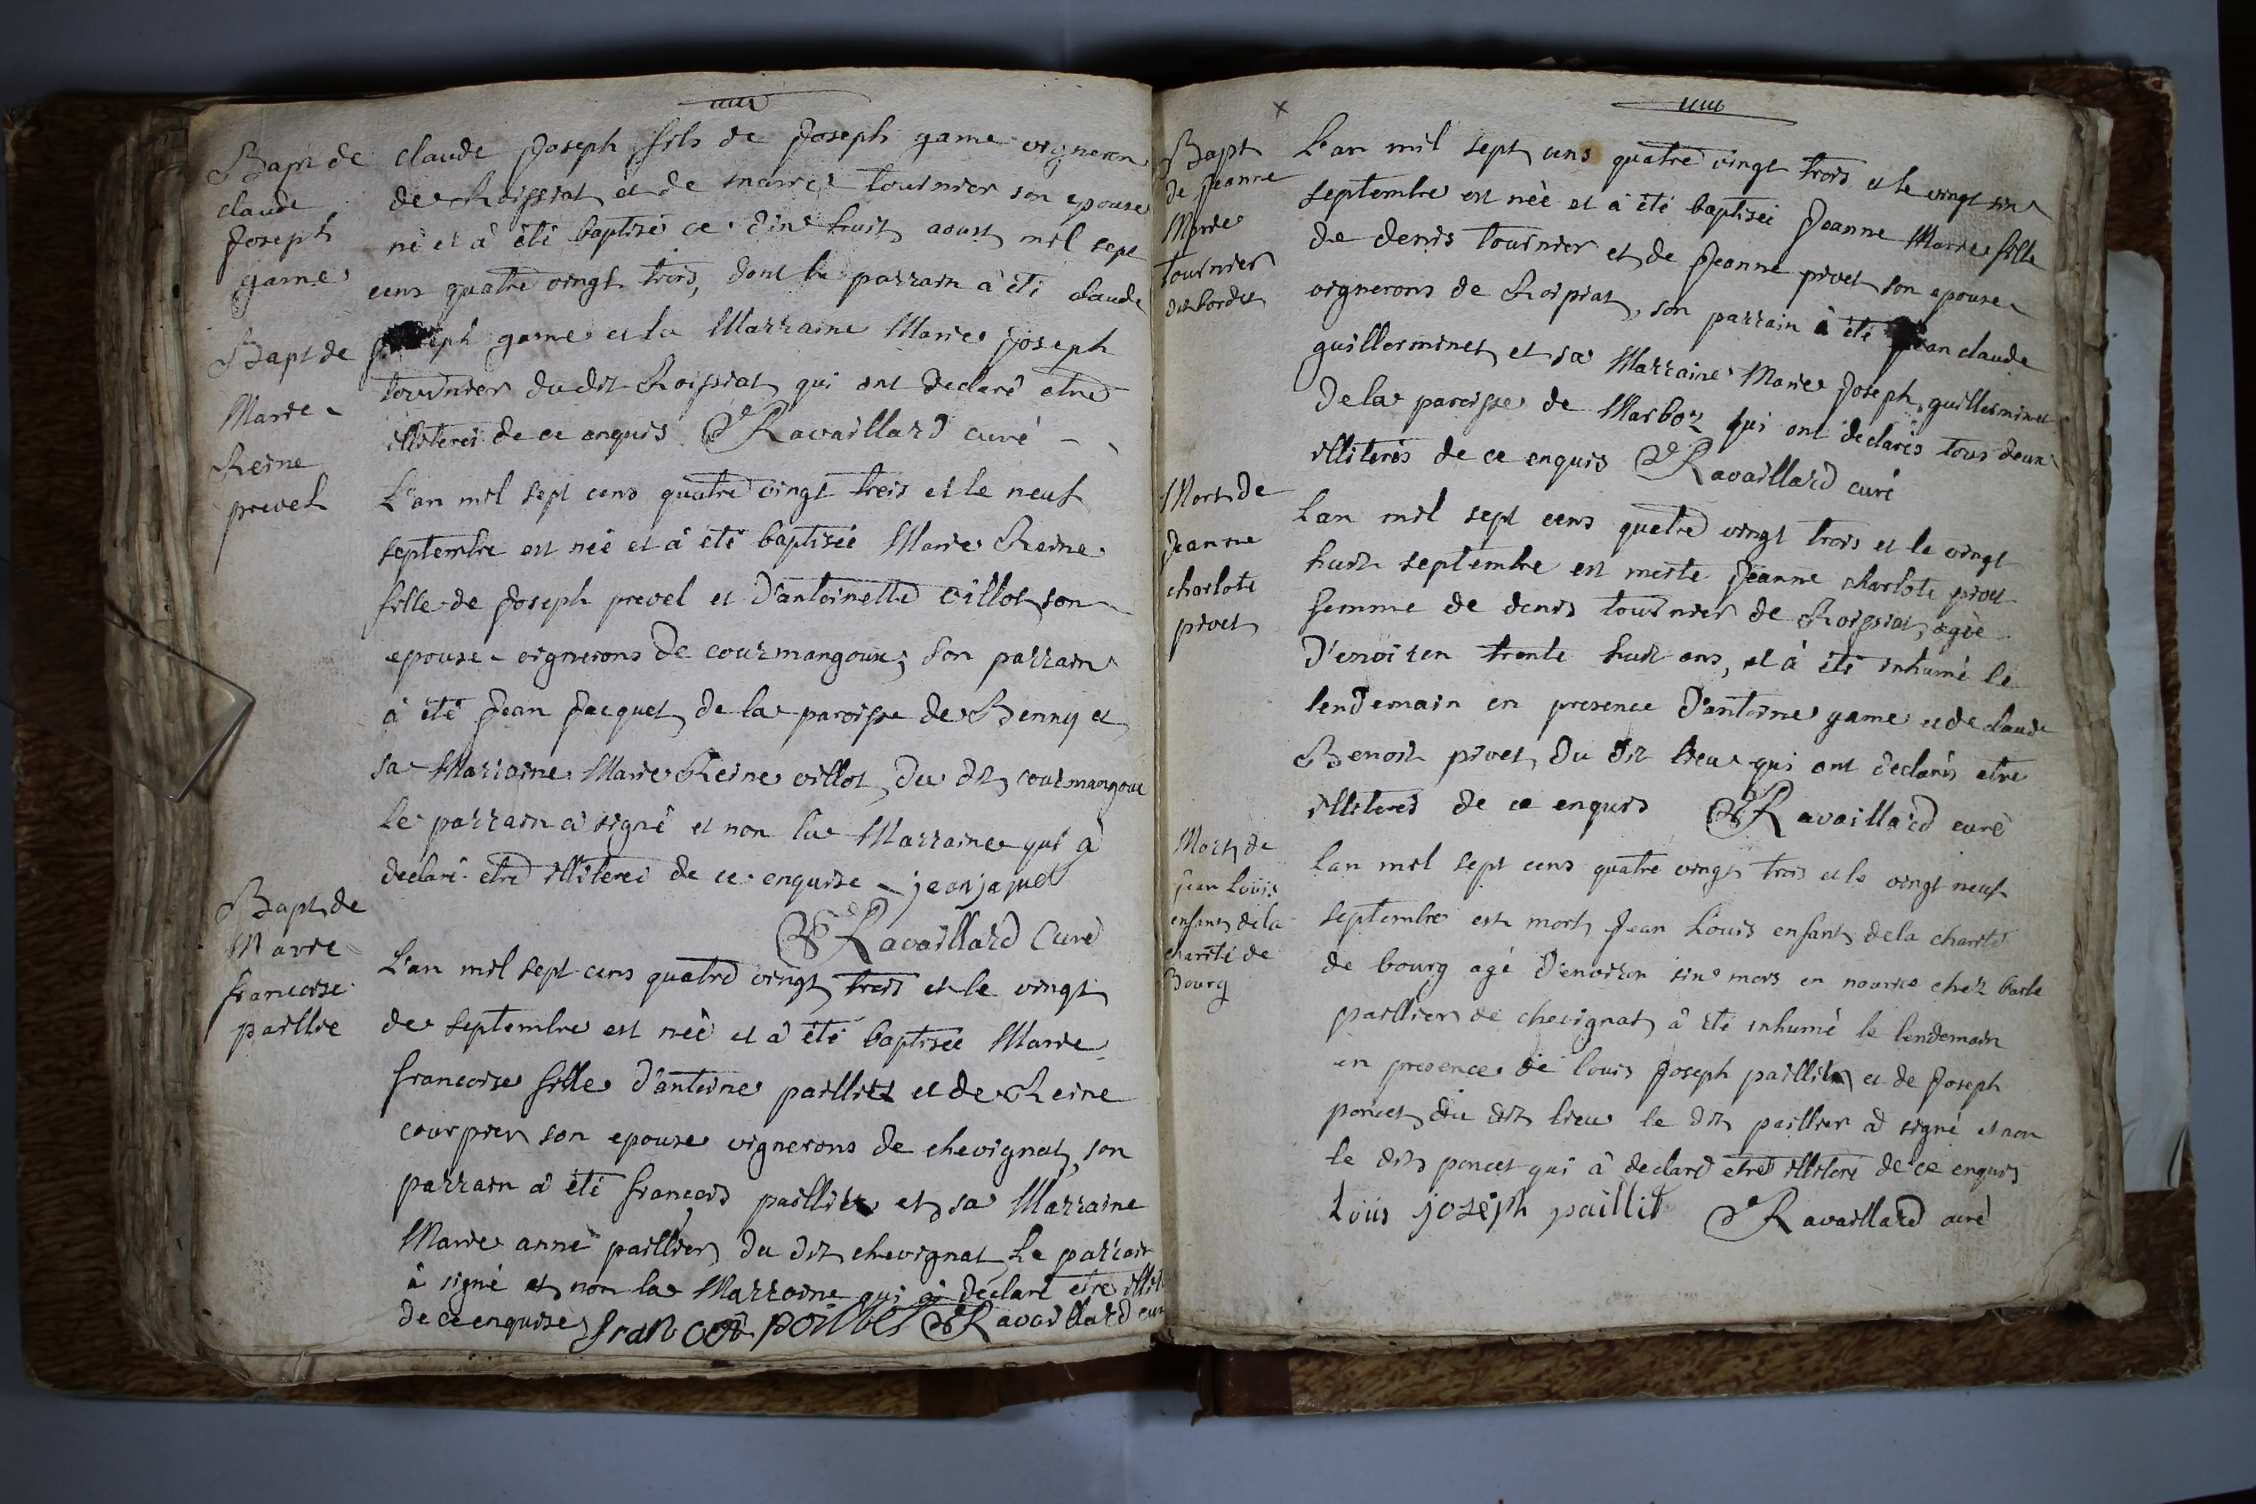 Bapt de
claude
Joseph
game
claude Joseph fils de Joseph game vigneron
de Roissiat et de marie tournier son epouse
né et à été baptisé ce dix huit aoust mil sept
cens quatre vingt trois, dont le parrain à été claude
Joseph game et la Marraine Marie Joseph
tournier du dit Roissiat qui ont declaré etre
illiterés de ce enquis Ravaillard curé
Bapt de
Marie
Reine
prevel
L'an mil sept cens quatre vingt trois et le neuf
septembre est née et à été baptisée Marie Reine
fille de Joseph prevel et d'antoinette villot son
epouse vignerons de courmangoux; son parrain
à été Jean Jacquet de la paroisse de Benny et
sa Marraine Marie Reine villot du dit courmangoux
le parrain à signé et non la Marraine qui à
declaré etre illiterée de ce enquise jean jaquet
Ravaillard Curé
Bapt de
Marie
francoise
paillie
L'an mil sept cens quatre vingt trois et le vingt
de septembre est née et à été baptisée Marie
francoise fille d'antoine paillier et de Reine
courpier son epouse vignerons de chevignat, son
parrain à été françois paillier et sa Marraine
Marie anne paillier du dit chevignat le parrain
à signé et non la Marraine qui à declaré etre illit
de ce enquise Ravaillard cur
Bapt
de Jeanne
Marie
tournier
L'an mil sept cens quatre vingt trois et le vingt six
septembre est née et à été baptisée Jeanne Marie fille
de denis tournier et de Jeanne pivet son epouse
vignerons de Roissiat, son parrain à été Jean claude
guillerminet et sa Marraine Marie Joseph guillerminet
de la paroisse de Marboz qui ont declarés tous deux
illiterés de ce enquis Ravaillard curé
Mort de
Jeanne
charlote
pivet
L'an mil sept cens quatre vingt trois et le vingt
huit septembre est morte Jeanne charlote pivet
femme de denis tournier de Roissiat, agée
d'environ trente huit ans, et à été inhumé le
lendemain en presence d'antoine game et de claude
Benoit pivet du dit lieu qui ont declarés etre
illiterés de ce enquis Ravaillard curé
Mort de
jean Loüis
enfant de la
charité de
Bourg
L'an mil sept cens quatre vingt trois et le vingt neuf
septembre est mort Jean Louis enfant de la charité
de bourg agé d'environ six mois en nourice chez
paillier de chevignat à été inhumé le lendemain
en presence de louis Joseph paillier et de Joseph
poncet du dit lieu le dit paillier à signé et non
le dit poncet qui à declaré etre illiteré de ce enquis
Loüis joseph paillie Ravaillard curé